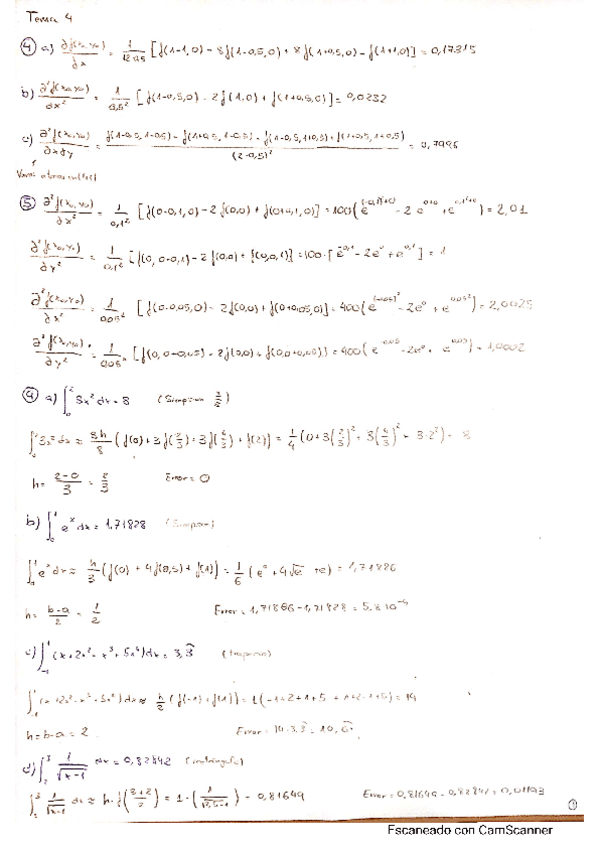 Tema 4
④ a) ∂f(x₀,y₀)/∂x = 1/(12·0,5) [f(1-1,0) - 8f(1-0,5,0) + 8f(1+0,5,0) - f(1+1,0)] = 0,17315
b) ∂²f(x₀,y₀)/∂x² = 1/0,5² [f(1-0,5,0) - 2f(1,0) + f(1+0,5,0)] = 0,0232
c) ∂²f(x₀,y₀)/∂x∂y = (f(1-0,5,1-0,5) - f(1+0,5,1-0,5) - f(1-0,5,1+0,5) + f(1+0,5,1+0,5))/(2·0,5)² = 0,7996
⑤ ∂²f(x₀,y₀)/∂x² = 1/0,1² [f(0-0,1,0) - 2f(0,0) + f(0+0,1,0)] = 100(e^((-0,1)²+0) - 2e^(0+0) + e^(0,1²+0)) = 2,01
∂²f(x₀,y₀)/∂y² = 1/0,1² [f(0,0-0,1) - 2f(0,0) + f(0,0,1)] = 100·[e^(-0,1) - 2e⁰ + e^(0,1)] = 1
∂²f(x₀,y₀)/∂x² = 1/0,05² [f(0-0,05,0) - 2f(0,0) + f(0+0,05,0)] = 400(e^((-0,05)²) - 2e⁰ + e^(0,05²)) = 2,0025
∂²f(x₀,y₀)/∂y² = 1/0,05² [f(0,0-0,05) - 2f(0,0) + f(0,0+0,05)] = 400(e^(-0,05) - 2e⁰ + e^(0,05)) = 1,0002
⑨ a) ∫₀² 3x² dx = 8 (Simpson 3/8)
∫₀² 3x² dx ≈ 3h/8 (f(0) + 3f(2/3) + 3f(4/3) + f(2)) = 1/4 (0 + 3(2/3)² + 3(4/3)² + 3·2²) = 8
h = (2-0)/3 = 2/3 Error = 0
b) ∫₀¹ eˣ dx = 1,71828 (Simpson)
∫₀¹ eˣ dx ≈ h/3 (f(0) + 4f(0,5) + f(1)) = 1/6 (e⁰ + 4√e + e) = 1,71886
h = (b-a)/2 = 1/2 Error = 1,71886 - 1,71828 = 5,8·10⁻⁴
c) ∫₋₁¹ (x+2x²-x³+5x⁴)dx = 3,3̂
∫₋₁¹ (x+2x²-x³+5x⁴)dx ≈ h/2 (f(-1)+f(1)) = 1(-1+2+1+5+1+2-1+5) = 14
h = b-a = 2 Error = 14-3,3̂ = 10,6̂
d) ∫₂³ 1/√(x-1) dx = 0,82842 (rectángulo)
∫₂³ 1/√(x-1) dx ≈ h·f((3+2)/2) = 1·(1/√(2,5-1)) = 0,81649 Error = 0,81649 - 0,82842 = 0,01193
①
Escaneado con CamScanner